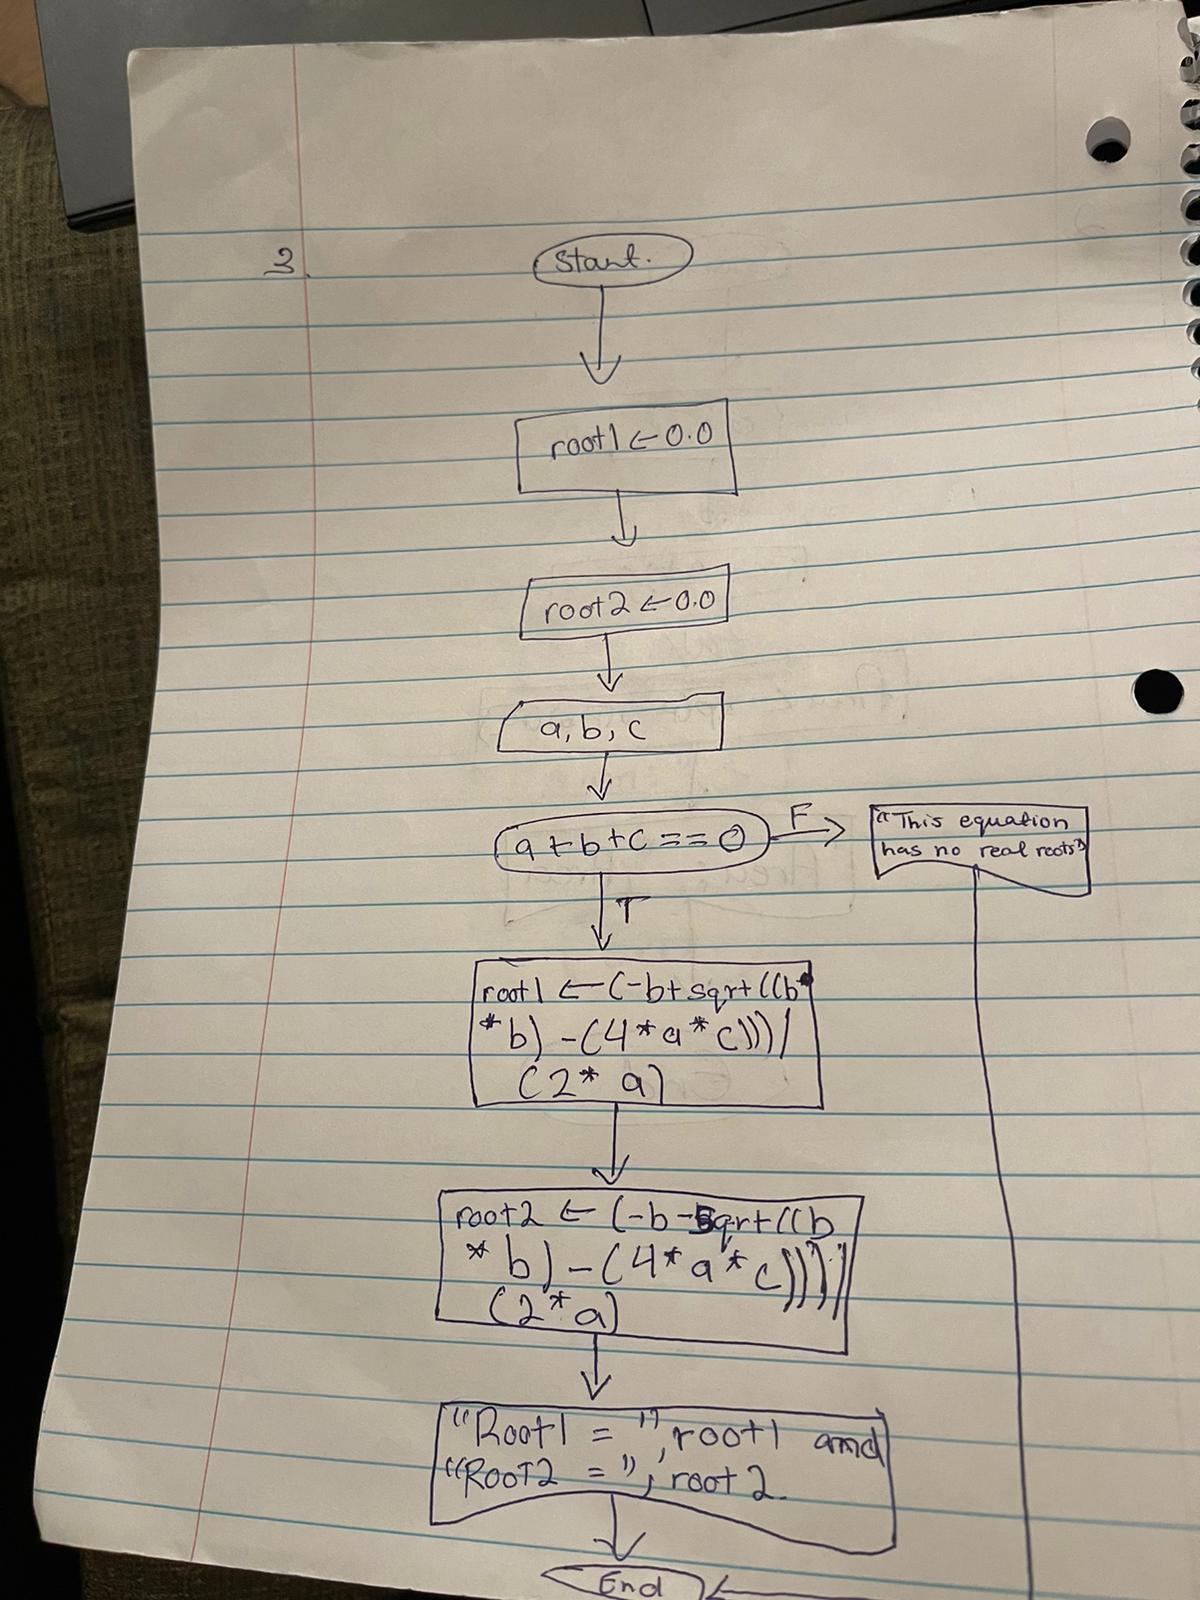 3.
Start.
root1 ← 0.0
root2 ← 0.0
a, b, c
a + b + c == 0
F
"This equation
has no real roots"
T
root1 ← (-b + sqrt((b*
*b) - (4*a*c)))/
(2* a)
root2 ← (-b - sqrt((b
* b) - (4*a*c))))/
(2*a)
"Root1 = ", root1 and
"ROOT2 = ", root2.
End